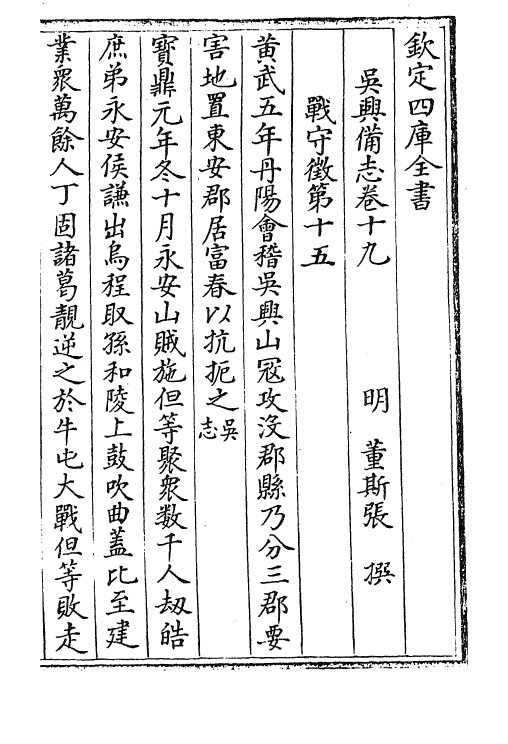 欽定四庫全書
吳興備志卷十九
明 董斯張 撰
戰守徵第十五
黄武五年丹陽會稽吳興山冦攻没郡縣乃分三郡要
害地置東安郡居富春以抗扼之吳志
寳鼎元年冬十月永安山賊施但等聚衆数千人刼皓
庶弟永安侯謙出烏程取孫和陵上鼓吹曲盖比至建
業衆萬餘人丁固諸葛靚逆之於牛屯大戰但等敗走